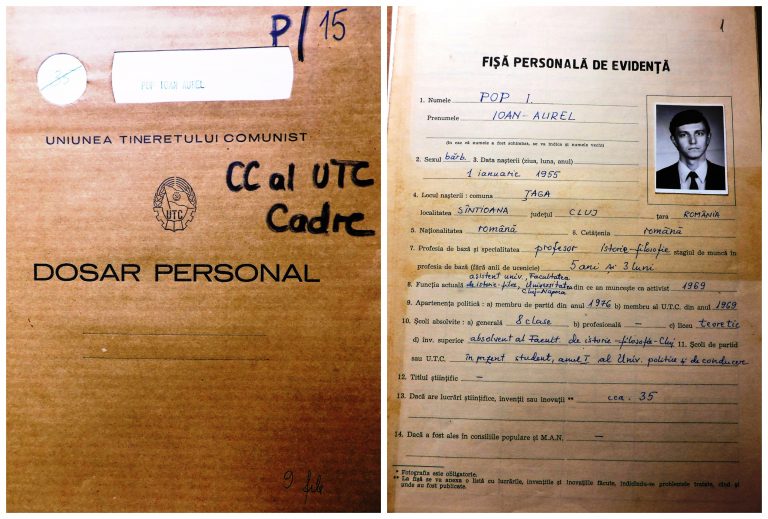 P/15
35
POP IOAN AUREL
UNIUNEA TINERETULUI COMUNIST
CC al UTC
Cadre
UTC
DOSAR PERSONAL
9 file
1
FIȘĂ PERSONALĂ DE EVIDENȚĂ
1. Numele POP I.
Prenumele IOAN-AUREL
(în caz că numele a fost schimbat, se va indica și numele vechi)
2. Sexul bărb. 3. Data nașterii (ziua, luna, anul)
1 ianuarie 1955
4. Locul nașterii: comuna ȚAGA
localitatea SÎNTIOANA județul CLUJ țara ROMÂNIA
5. Naționalitatea română 6. Cetățenia română
7. Profesia de bază și specialitatea profesor istorie-filosofie stagiul de muncă în
profesia de bază (fără anii de ucenicie) 5 ani și 3 luni
asistent univ., Facultatea
8. Funcția actuală de istorie-filos., Universitatea din ce an muncește ca activist 1969
Cluj-Napoca
9. Apartenența politică: a) membru de partid din anul 1976 b) membru al U.T.C. din anul 1969
10. Școli absolvite: a) generală 8 clase b) profesională — c) liceu teoretic
d) înv. superior absolvent al Facult. de istorie-filosofie-Cluj 11. Școli de partid
sau U.T.C. în prezent student, anul I al Univ. politice și de conducere
12. Titlul științific —
13. Dacă are lucrări științifice, invenții sau inovații ** cca. 35
14. Dacă a fost ales în consiliile populare și M.A.N. —
* Fotografia este obligatorie.
** La fișă se va anexa o listă cu lucrările, invențiile și inovațiile făcute, indicîndu-se problemele tratate, cînd și
unde au fost publicate.